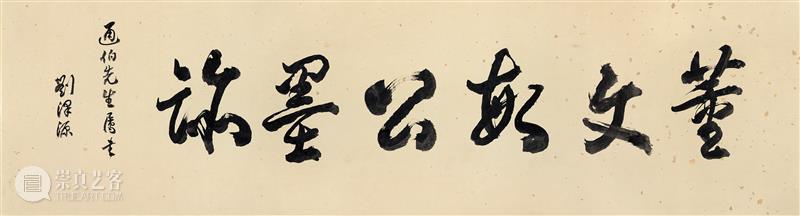 董文敏公墨跡
通伯先生属書
劉澤源
崇真艺客
TRUEART.COM